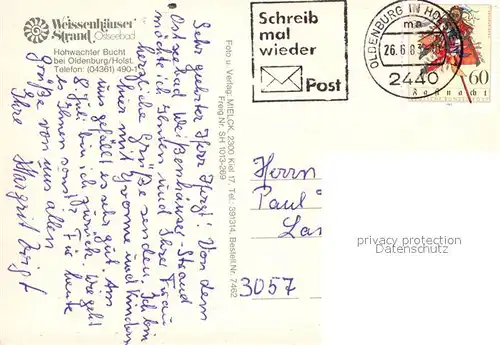 Weissenhäuser
Strand Ostseebad
Hohwachter Bucht
bei Oldenburg/Holst.
Telefon: (04361) 490-1
Sehr geehrter Herr! Von dem
Ostseebad Weißenhäuser-Strand
möchte ich Ihnen und Ihrer Frau
herzliche Grüße senden. Ich bin
hier mit Yvonne und Kindern
uns gefällt es sehr gut. Am
8. Juli bin ich zurück. Wie geht
es Ihnen sonst? Für heute
Grüße von uns allen
Ihre Margrit
Foto u. Verlag: MIELCK, 2300 Kiel 17, Tel.: 391314, Bestell.Nr. 7462
Freig.Nr. SH 1013-269
Schreib
mal
wieder
Post
OLDENBURG IN HOLST
ma
26.6.8
2440
60
Faßnacht
Herrn
Paul
La
3057
privacy protection
Datenschutz